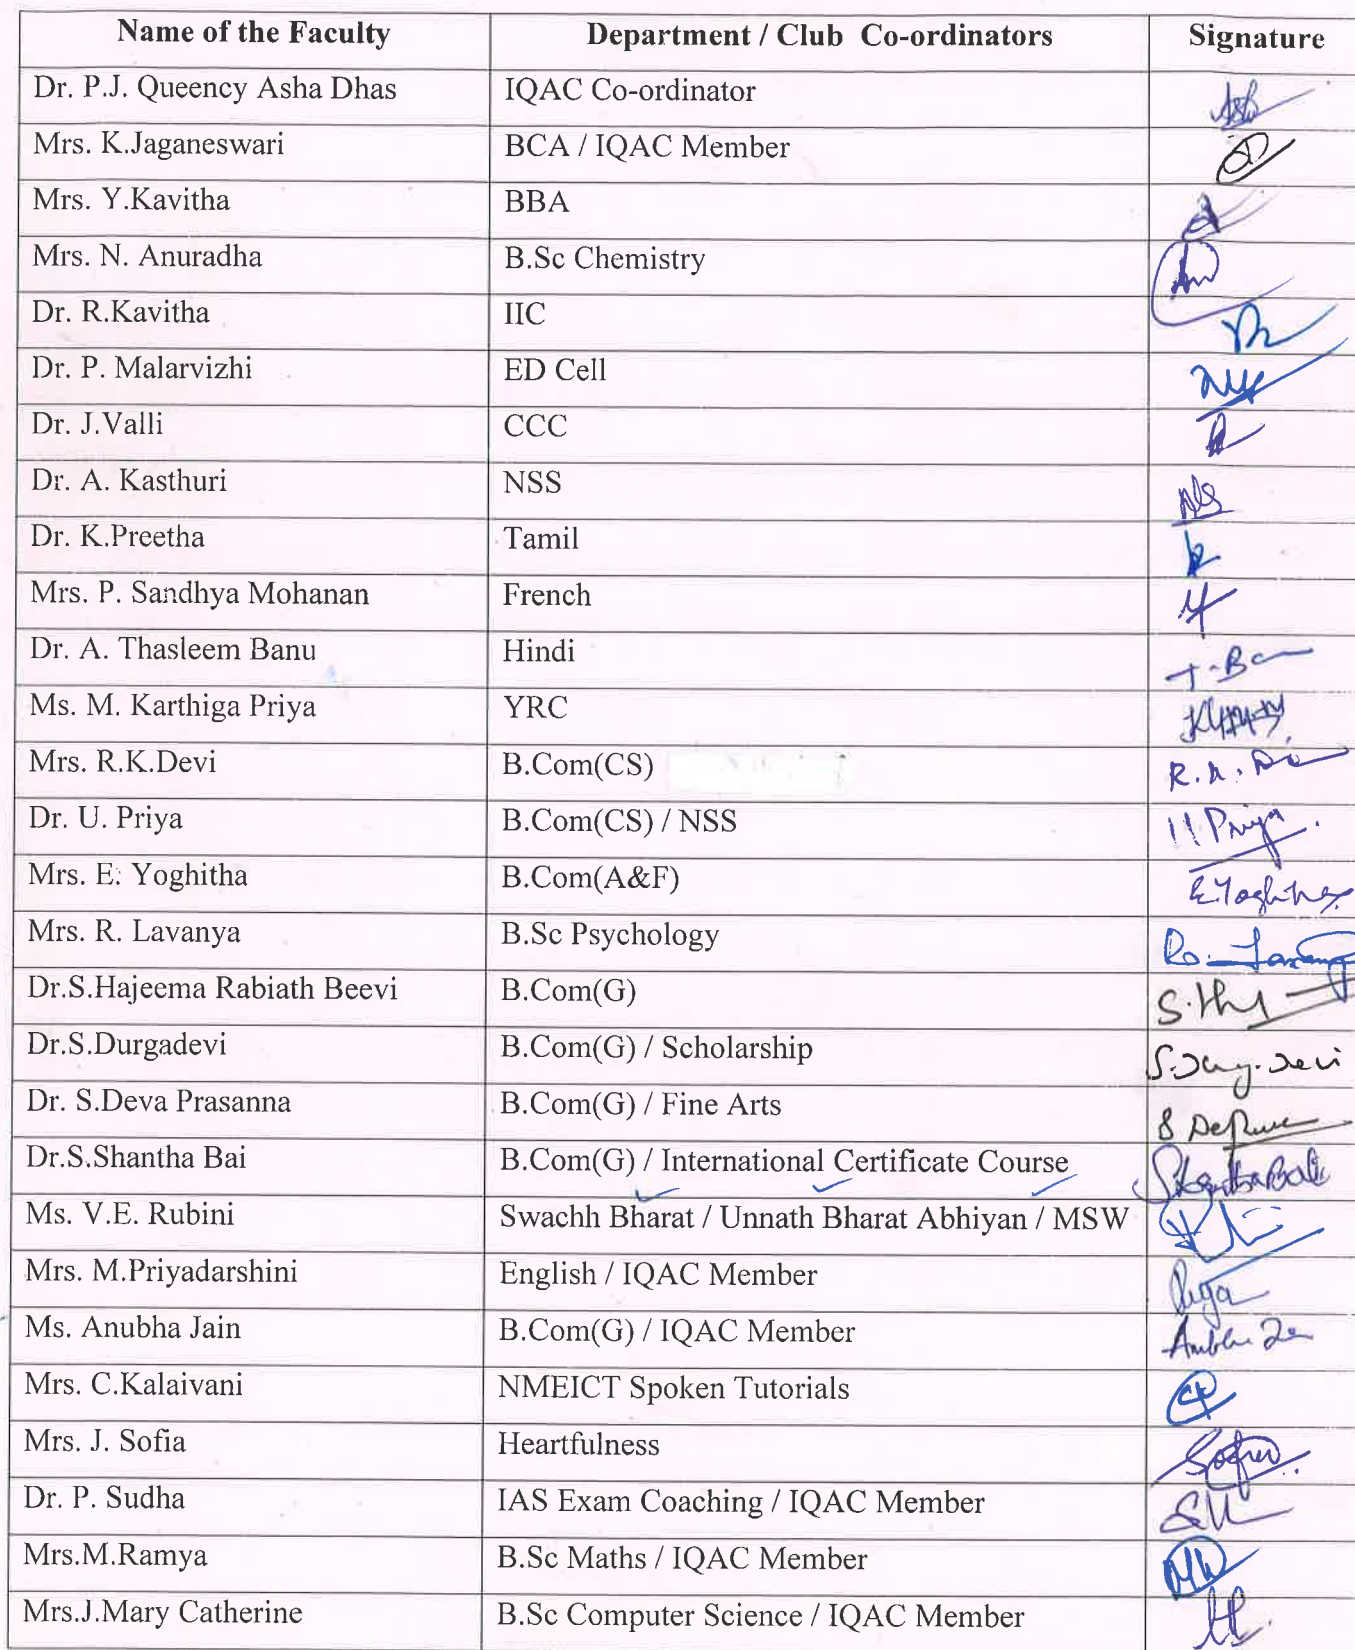 Name of the Faculty Department / Club Co-ordinators Signature
Dr. P.J. Queency Asha Dhas IQAC Co-ordinator
Mrs. K.Jaganeswari BCA / IQAC Member
Mrs. Y.Kavitha BBA
Mrs. N. Anuradha B.Sc Chemistry
Dr. R.Kavitha IIC
Dr. P. Malarvizhi ED Cell
Dr. J.Valli CCC
Dr. A. Kasthuri NSS
Dr. K.Preetha Tamil
Mrs. P. Sandhya Mohanan French
Dr. A. Thasleem Banu Hindi
Ms. M. Karthiga Priya YRC
Mrs. R.K.Devi B.Com(CS)
Dr. U. Priya B.Com(CS) / NSS U Priya
Mrs. E. Yoghitha B.Com(A&F) E.Yoghitha
Mrs. R. Lavanya B.Sc Psychology
Dr.S.Hajeema Rabiath Beevi B.Com(G)
Dr.S.Durgadevi B.Com(G) / Scholarship
Dr. S.Deva Prasanna B.Com(G) / Fine Arts
Dr.S.Shantha Bai B.Com(G) / International Certificate Course
Ms. V.E. Rubini Swachh Bharat / Unnath Bharat Abhiyan / MSW
Mrs. M.Priyadarshini English / IQAC Member
Ms. Anubha Jain B.Com(G) / IQAC Member
Mrs. C.Kalaivani NMEICT Spoken Tutorials
Mrs. J. Sofia Heartfulness
Dr. P. Sudha IAS Exam Coaching / IQAC Member
Mrs.M.Ramya B.Sc Maths / IQAC Member
Mrs.J.Mary Catherine B.Sc Computer Science / IQAC Member